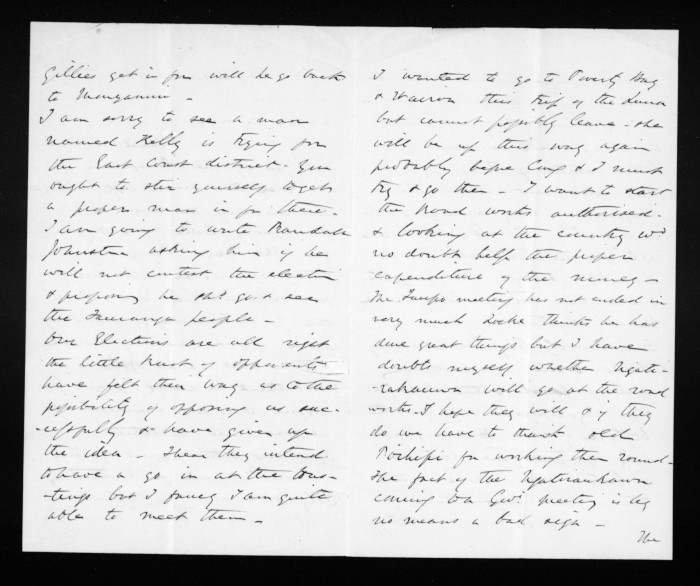 Gillies get in for will he go back
to Mongonui -
I am sorry to see a man
named Kelly is trying for
the East Coast district. You
ought to stir yourself to get
a proper man in for there -
I am going to write Randall
Johnstone asking him if he
will not contest the election
& proposing he shd go & see
the Tauranga people -
Our Elections are all right
the little knot of opponents
have felt their way as to the
possibility of opposing us suc-
-cessfully & have given up
the idea - I hear they intend
to have a go in at the hus-
-tings but I fancy I am quite
able to meet them -
I wanted to go to Poverty Bay
& Wairoa this trip of the Luna
but cannot possibly leave - she
will be up this way again
probably before long & I must
try & go then - I want to start
the Road works authorised -
& looking at the country wd
no doubt help the proper
expenditure of the money -
The Taupo meeting has not ended in
very much Locke thinks he has
done great things but I have
doubts myself whether Ngati-
-rakauwa will go at the road
works - I hope they will & if they
do we have to thank old
Poihipi for working them round -
The fact of the Ngatiraukawa
coming to a Govt meeting is by
no means a bad sign -
The